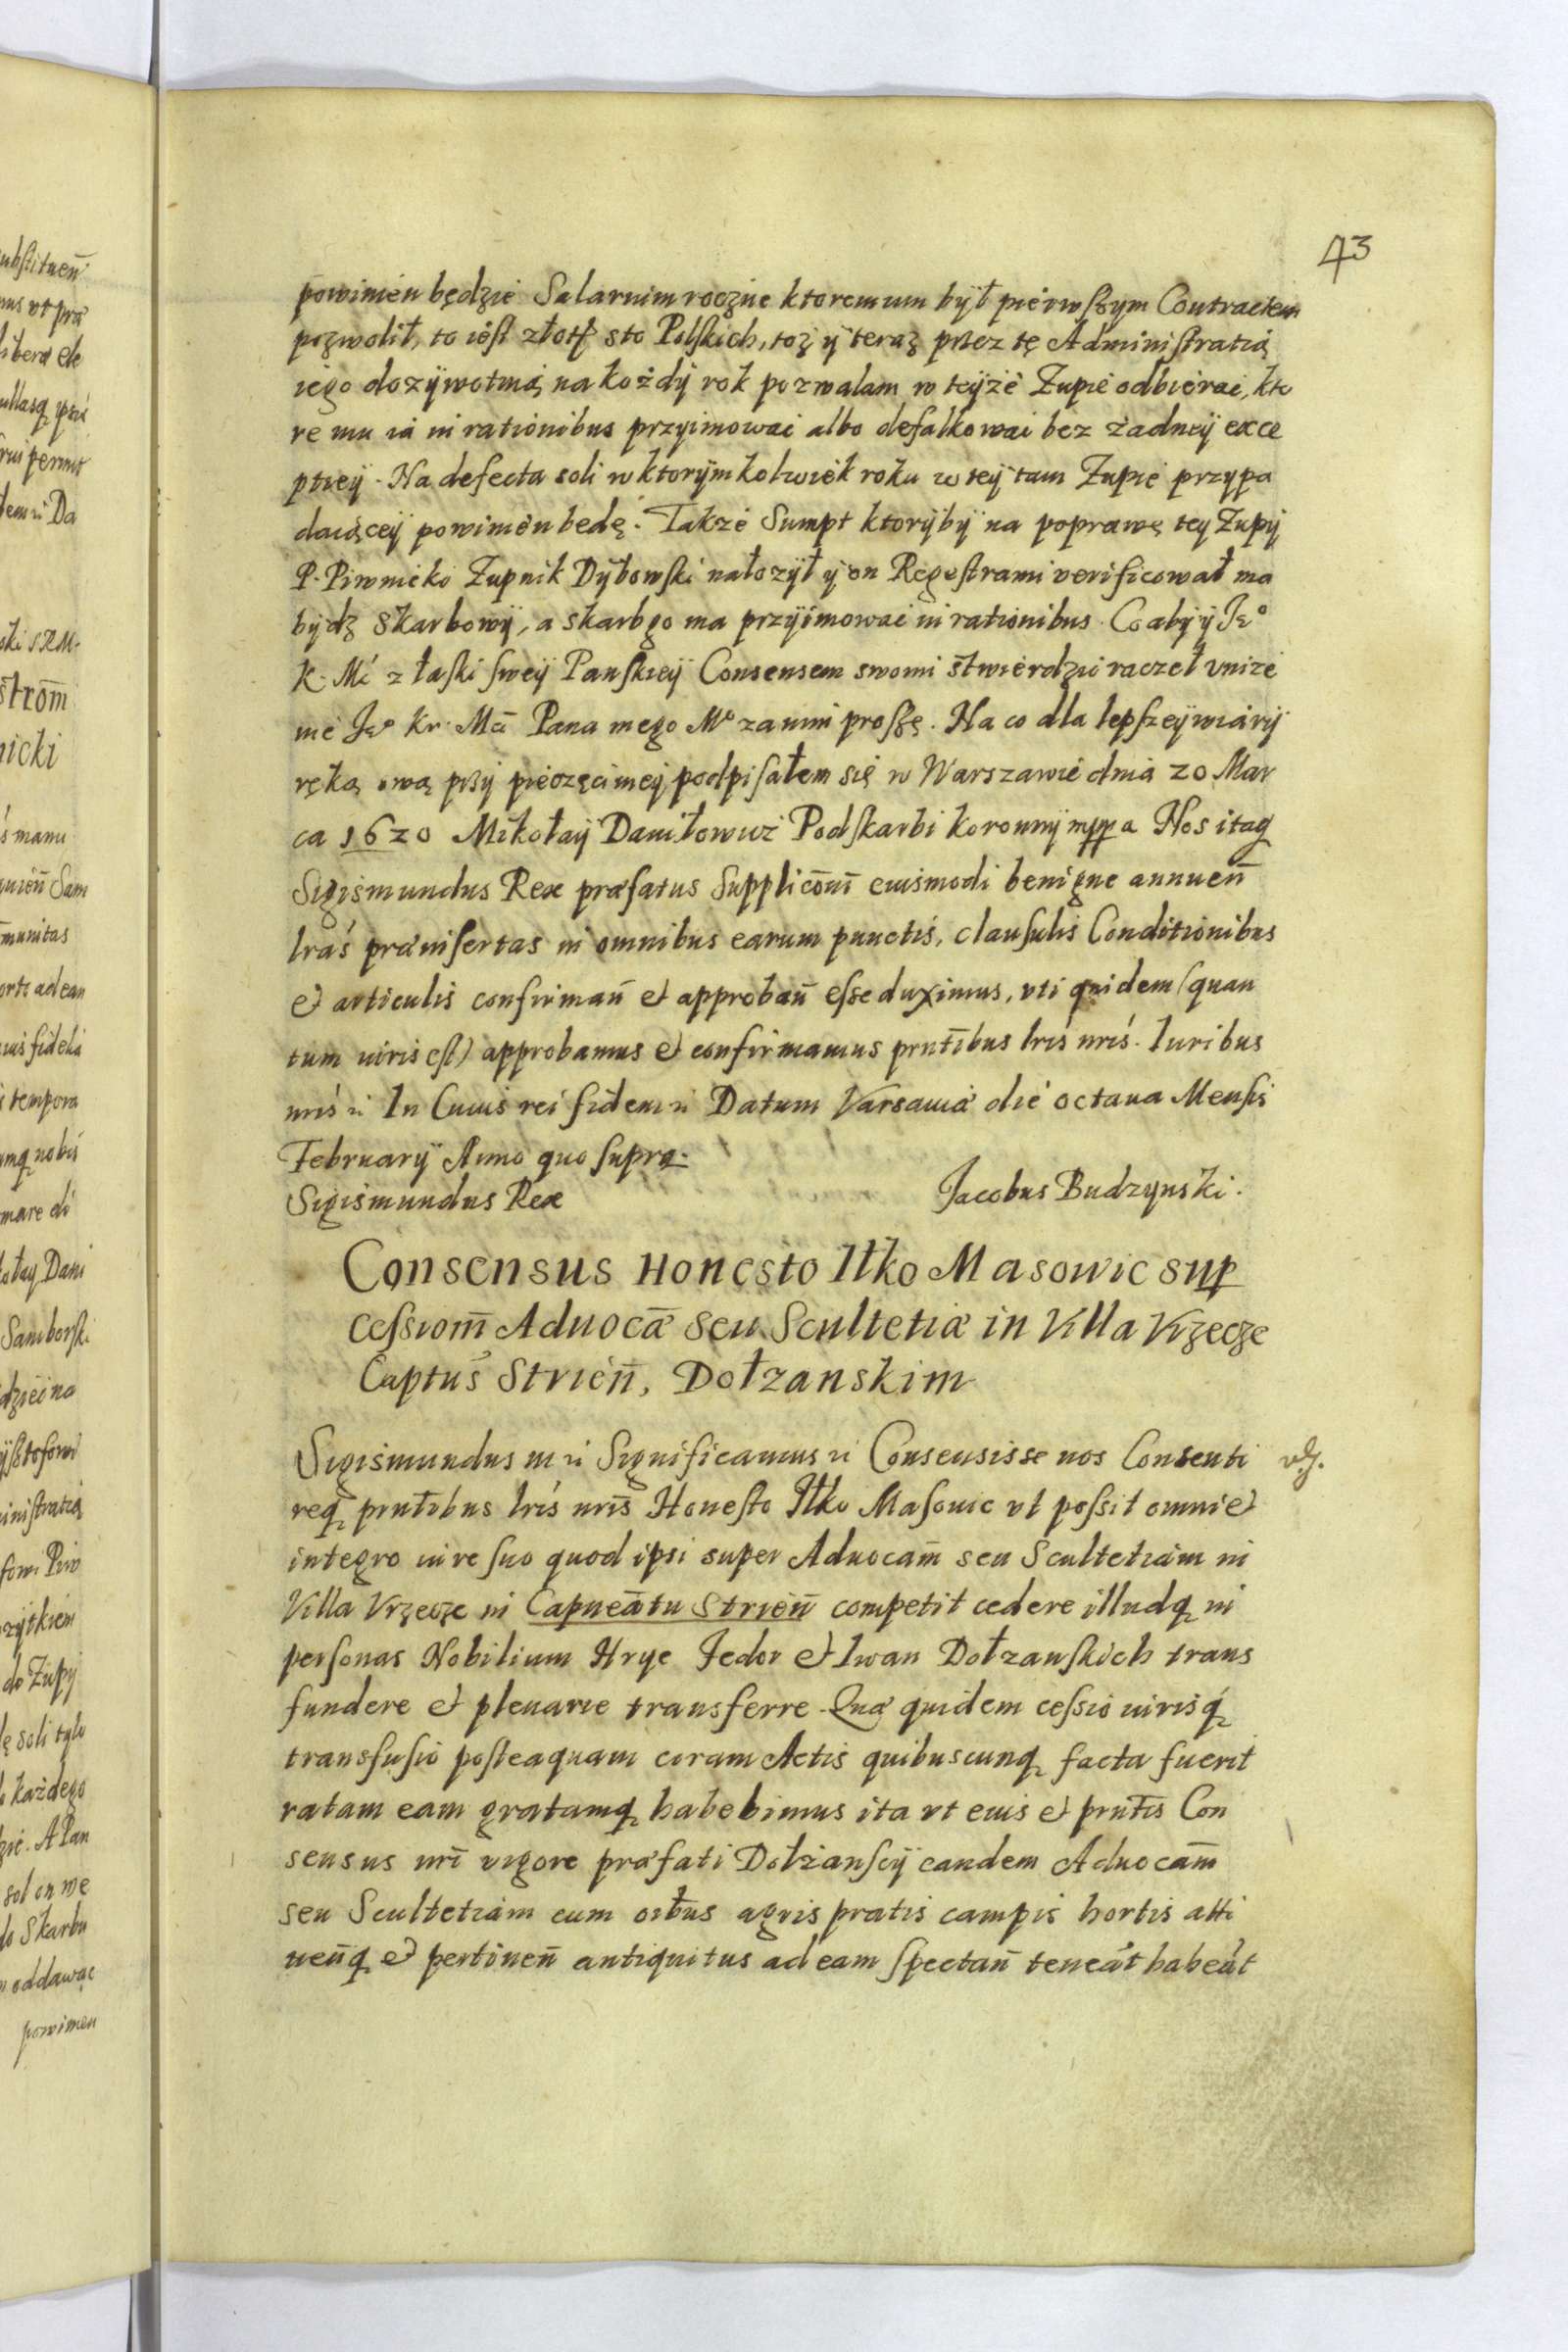 43
powinien będzie Salarium roczne ktorem um był pierwszym Contractem
pozwolił, to iest złotÿ sto Polskich, toż ÿ teraz przez tę Administratią
iego dożÿwotnią na kożdÿ rok pozwalam w teÿże Żupie odbierać, kto
re mu ia in rationibus przyimować albo defalkować bez żadneÿ exce
ptieÿ. Na defecta soli w ktorÿmkolwiek roku w teÿ tam Żupie przypa
daiąceÿ powinien bedę. Także Sumpt ktorÿbÿ na poprawę tey Żupÿ
P. Piwnicko Żupnik Dÿbowski nałożÿł ÿ on Regestrami verificował ma
bÿdz Skarbowÿ, a skarb go ma przÿimować in rationibus. Co abÿ ÿ Je°
K. Mć z łaski sweÿ Panskieÿ Consensem swoim stwierdzić raczeł vniże
nie Je° Kr. Mci Pana mego M° za nim proszę. Na co dla lepszeÿ wiarÿ
ręką swą przÿ pieczęci meÿ podpisałem się w Warszawie dnia 20 Mar
ca 1620 Mikołaÿ Daniłowicz Podskarbi koronnÿ mppa Nos itaq
Sigismundus Rex præfatus Supplicōni eiusmodi benigne annueñ
lras præinsertas in omnibus earum punctis, clausulis Conditionibus
et articulis confirmañ et approbañ esse duximus, vti quidem (quan
tum iuris est) approbamus et confirmamus prntibus lris nris. Iuribus
nris etc In Cuius rei fidem etc Datum Varsauiæ die octaua Mensis
Februarÿ Anno quo supra.
Sigismundus Rex Jacobus Budzynski.
Consensus Honesto Iłko Masowic sup
cessiom̄ Aduocā seu Scultetiæ in Villa Vrzecze
Captus Strień, Dołzanskim
Sigismundus III etc Significamus etc Consensisse nos Consenti
req prntibus lris nris Honesto Iłko Masouic vt possit omni et
integro iure suo quod ipsi super Aduocam̄ seu Scultetiam in
Villa Vrzecze in Capneātu Strień competit cedere illudq in
personas Nobilium Hryc Fedor et Iwan Dołzanskich trans
fundere et plenarie transferre. Quæ quidem cessio iurisq
transfusio posteaquam coram Actis quibuscunq facta fuerit
ratam eam gratamq habebimus ita vt euis et prntis Con
sensus nri vigore præfati Dołżanscÿ eandem Aduocam̄
seu Scultetiam cum oibus agris pratis campis hortis atti
neñq et pertineñ antiquitus ad eam spectañ teneāt habeāt